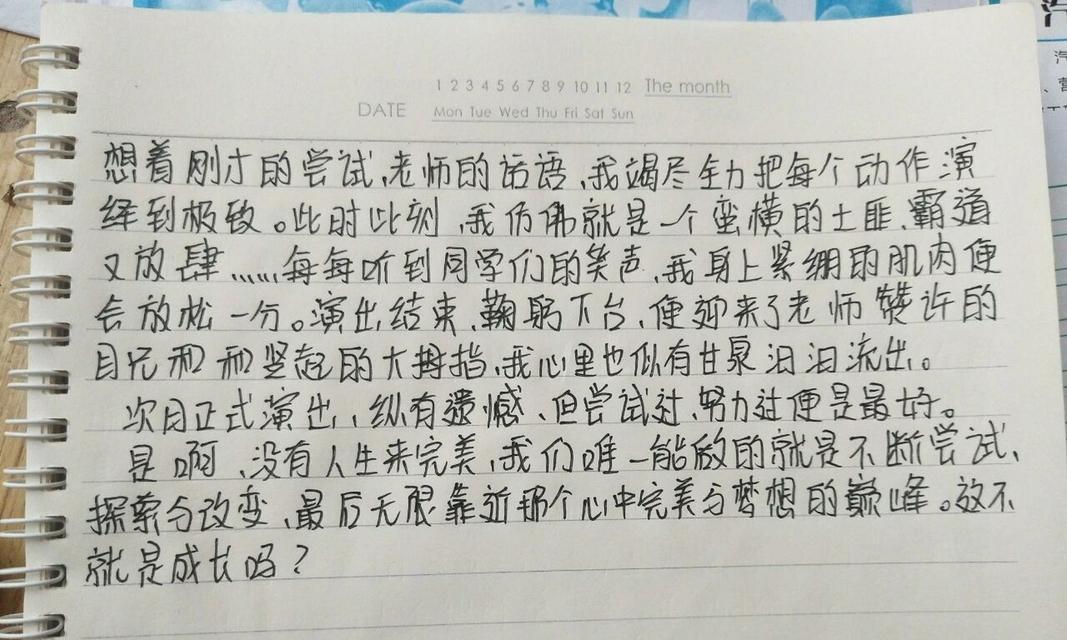 1 2 3 4 5 6 7 8 9 10 11 12 The month
DATE Mon Tue Wed Thu Fri Sat Sun
想着刚才的尝试,老师的话语,我竭尽全力把每个动作演
绎到极致。此时此刻,我仿佛就是一个蛮横的土匪,霸道
又放肆……每每听到同学们的笑声,我身上紧绷的肌肉便
会放松一分。演出结束,鞠躬下台,便迎来了老师赞许的
目光和和竖起的大拇指,我心里也似有甘泉汩汩流出。
次日正式演出,纵有遗憾,但尝试过,努力过便是最好。
是啊,没有人生来完美,我们唯一能做的就是不断尝试、
探索与改变,最后无限靠近那个心中完美与梦想的巅峰。这不
就是成长吗?